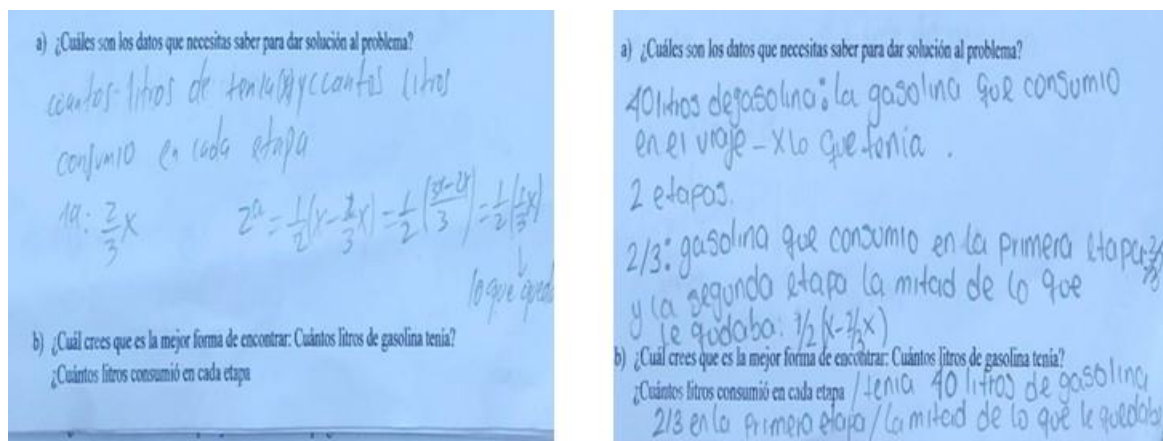 a) ¿Cuáles son los datos que necesitas saber para dar solución al problema?
cuantos litros de tenia y cuantos litros
consumió en cada etapa
1ª: 2/3 x 2ª = 1/2 (x - 2/3 x) = 1/2 ((3x-2x)/3) = 1/2 (1/3 x)
lo que queda
b) ¿Cuál crees que es la mejor forma de encontrar: Cuántos litros de gasolina tenia?
¿Cuántos litros consumió en cada etapa
a) ¿Cuáles son los datos que necesitas saber para dar solución al problema?
40 litros de gasolina: la gasolina que consumio
en el viaje - x lo que tenia.
2 etapas.
2/3: gasolina que consumio en la primera etapa: 2/3
y la segunda etapa la mitad de lo que
le qudaba: 1/2 (x - 2/3 x)
b) ¿Cuál crees que es la mejor forma de encontrar: Cuántos litros de gasolina tenia?
¿Cuántos litros consumió en cada etapa / tenia 40 litros de gasolina
2/3 en la primera etapa / la mitad de lo que le quedaba